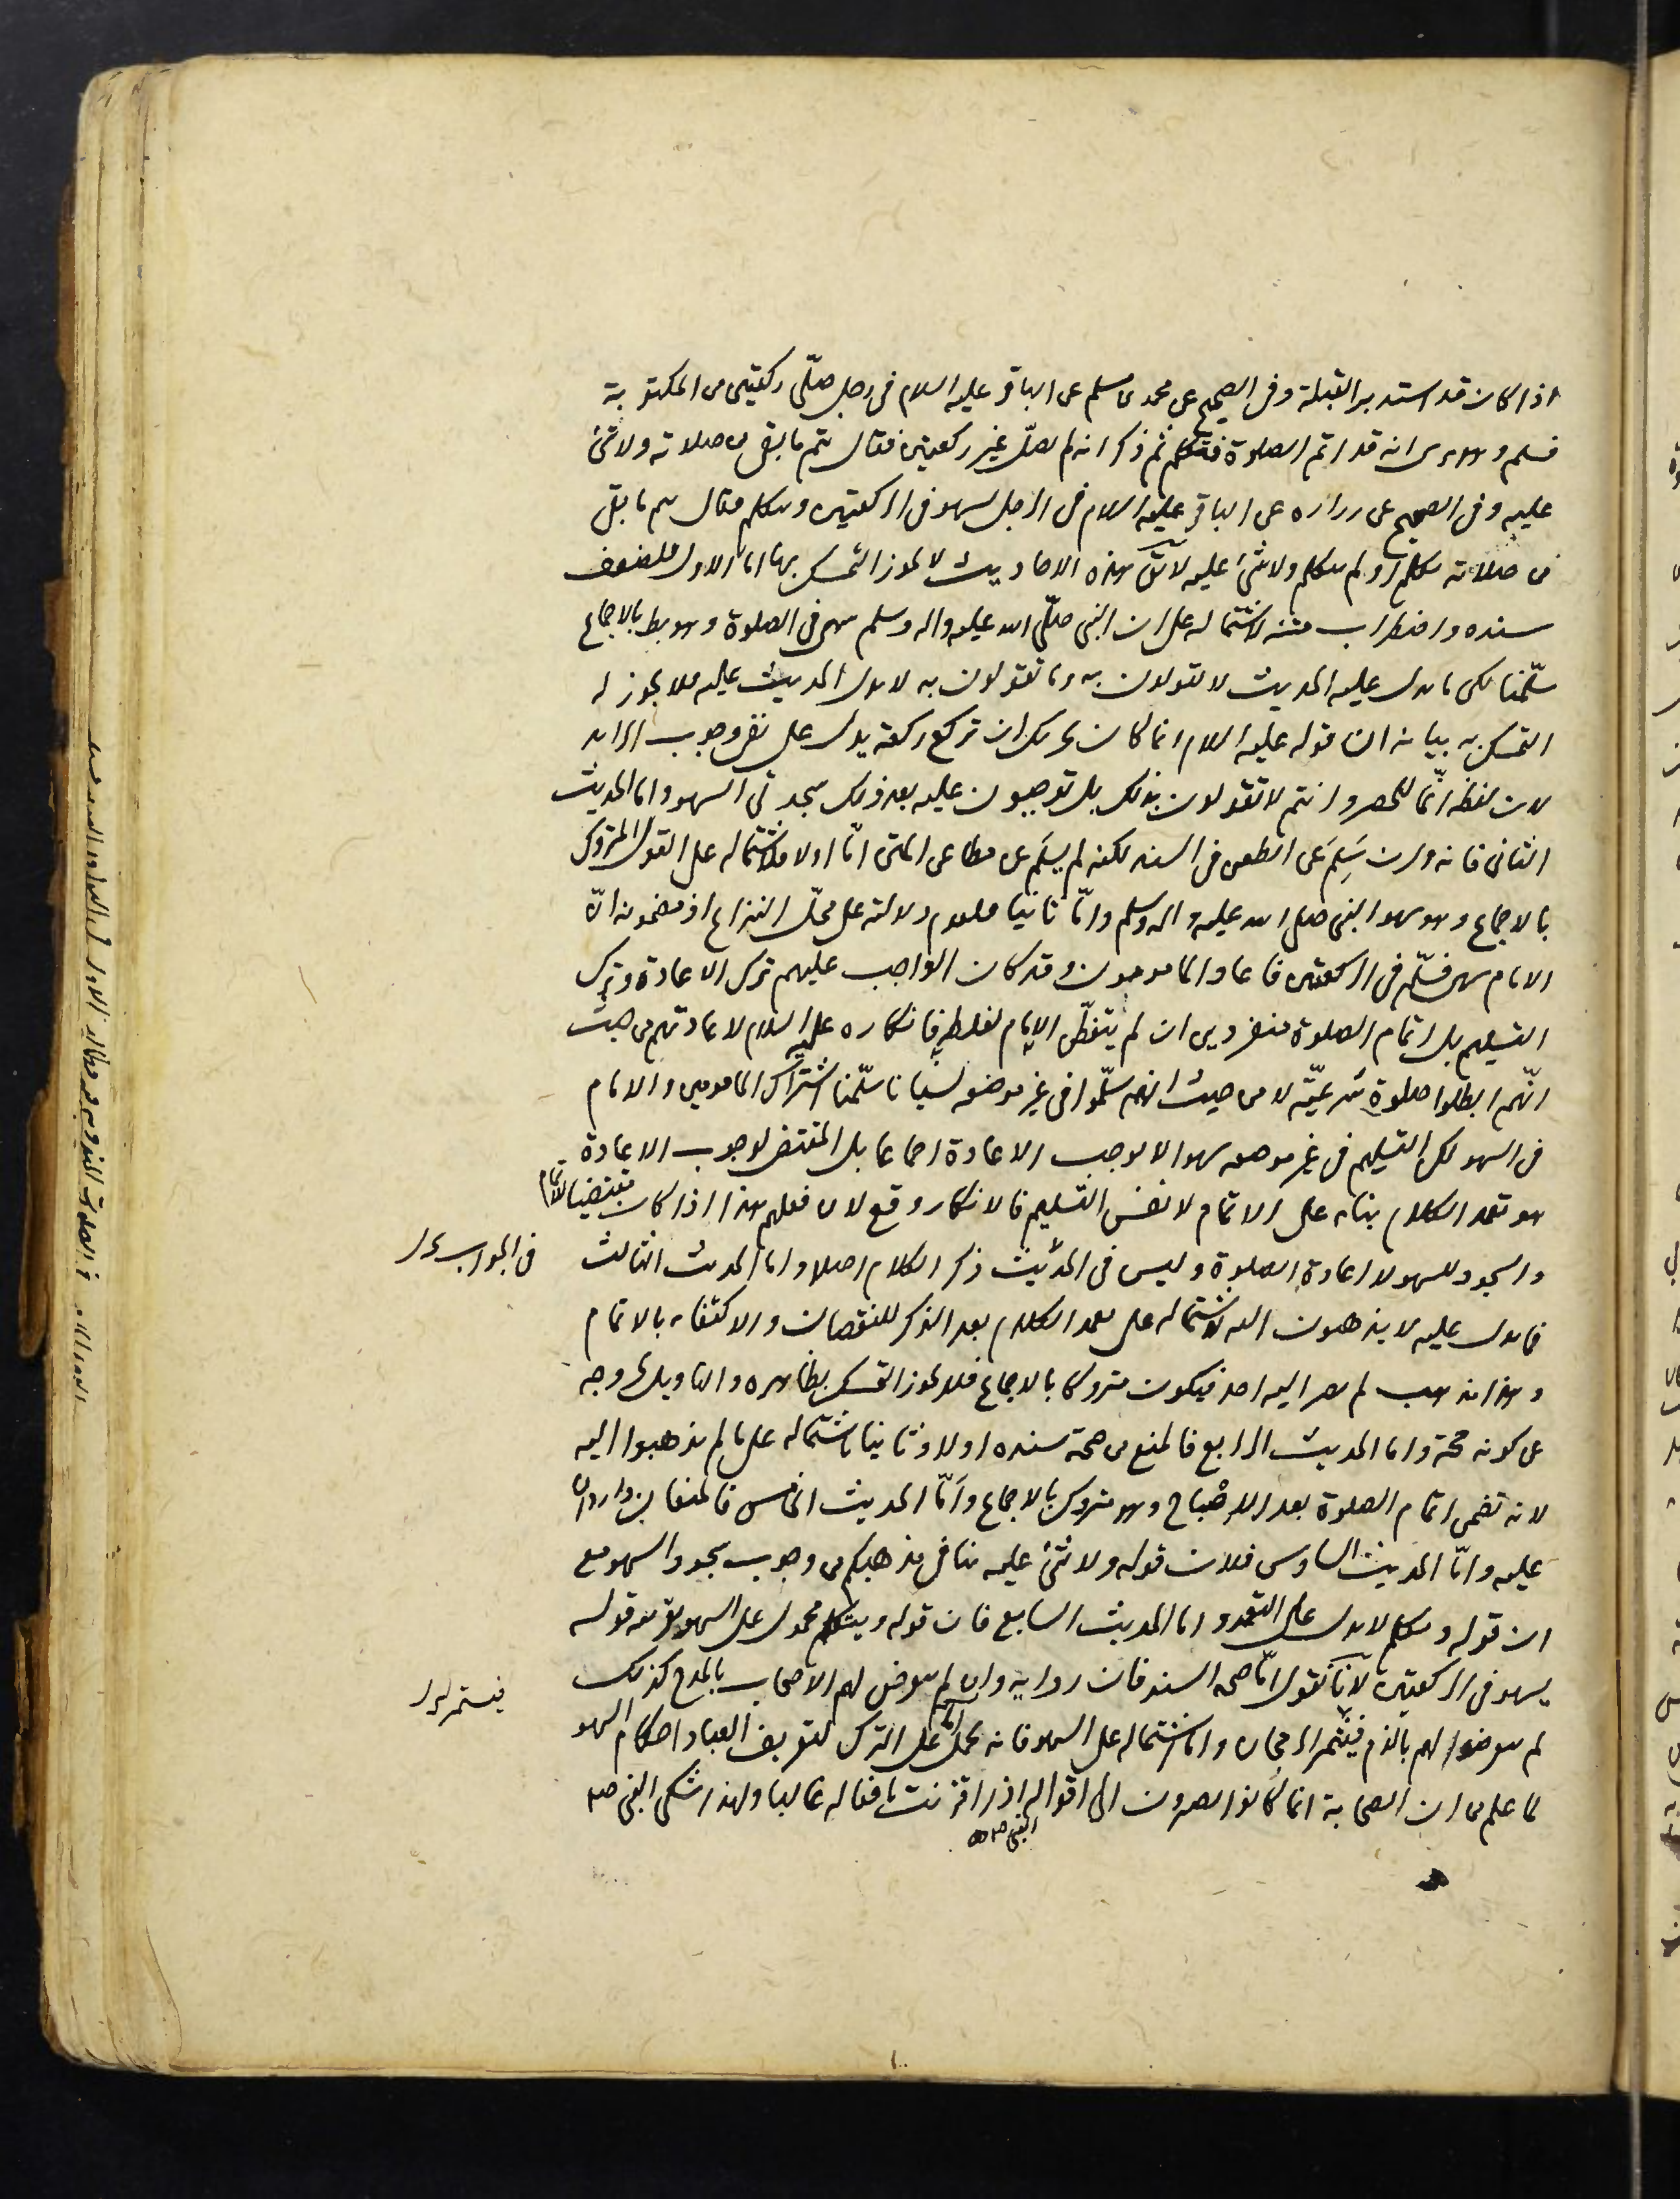 اذا كان قد استدبر القبلة وفى الصحيح عن محمد بن مسلم عن الباقر عليه السلام فى رجل صلّى ركعتين من المكتوبة
فسلم وهو يرى انه قد اتم الصلوة فتكلم ثم ذكر انه لم يصلّ غير ركعتين فقال يتم ما بقى من صلاته ولا شئ
عليه وفى الصحيح عن زراره عن الباقر عليه السلام فى الرجل يسهو فى الركعتين ويتكلم فقال يتم ما بقى
من صلاته تكلم او لم يتكلم ولا شئ عليه لا يق هذه الاحاديث لا يجوز التمسك بها اما الاول فلضعف
سنده واضطراب متنه لاشتماله على ان النبى صلّى الله عليه واله وسلم سهى فى الصلوة وهو بط بالاجماع
سلّمنا لكن ما يدل عليه الحديث لا تقولون به وما تقولون به لا يدل الحديث عليه فلا يجوز له
التمسك به بيانه ان قوله عليه السلام انما كان يجزيك ان تركع ركعة يدل على نفى وجوب الزايد
لان لفظة انّما للحصر وانتم لا تقولون بذلك بل توجبون عليه بعد ذلك سجدتى السهو واما الحديث
الثانى فانه وان سَلِمَ عن الطعن فى السند لكنه لم يسلَم عن مطاعن المتن امّا اولا فلاشتماله على القول المتروك
بالاجماع وهو سهو النبى صلى الله عليه واله وسلم وامّا ثانيا فلعدم دلالته على محلّ النزاع اذ مضمونه انّ
الامام سهى فسلّم فى الركعتين فاعاد المامومون وقد كان الواجب عليهم ترك الاعادة وترك
التسليم بل اتمام الصلوة منفردين ان لم يتفطّن الامام لغلطه فانكاره عليه السلام لاعادتهم من حيث
انّهم ابطلوا صلوة شرعيّة لا من حيث انهم سلّموا فى غير موضعه نسيانا سلّمنا اشتراك المامومين والامام
فى السهو لكن التسليم فى غير موضعه سهوا لا يوجب الاعادة اجماعا بل المقتضى لوجوب الاعادة
هو تعمد الكلام بنائه على الاتمام لا نفس التسليم فالانكار وقع لان فعلهم هذا اذا كان مقتضيا للاتمام
والسجود للسهو لا اعادة الصلوة وليس فى الحديث ذكر الكلام اصلا واما الحديث الثالث
فى الجواب
فما يدل عليه لا يذهبون اليه لاشتماله على تعمد الكلام بعد الذكر للنقصان والاكتفاء بالاتمام
وهذا مذهب لم يصر اليه احد فيكون متروكا بالاجماع فلا يجوز التمسك بظاهره والتاويل يخرجه
عن كونه حجة واما الحديث الرابع فالمنع من صحة سنده اولا وثانيا اشتماله على ما لم يذهبوا اليه
لانه تضمن اتمام الصلوة بعد الاصباح وهو متروك بالاجماع وامّا الحديث الخامس فالمنعان واردان
عليه وامّا الحديث السادس فلان قوله ولا شئ عليه ينافى مذهبكم من وجوب سجود السهو مع
ان قوله وتكلم لا يدل على التعمد واما الحديث السابع فان قوله ويتكلم محمول على السهو بقرينة قوله
يسهو فى الركعتين لانّا نقول امّا صحة السند فان رواته وان لم يتعرض لهم الاصحاب بالمدح كذلك
فيستمر
لم يتعرضوا لهم بالذم فيثمر الرجحان واما اشتماله على السهو فانه يحمل على الترك لتعريف العباد احكام السهو
لما علم من ان الصحابة انما كانوا يصيرون الى اقواله اذا اقترنت بافعاله غالبا ولهذا شكى النبى صلى
النبى صلى الله